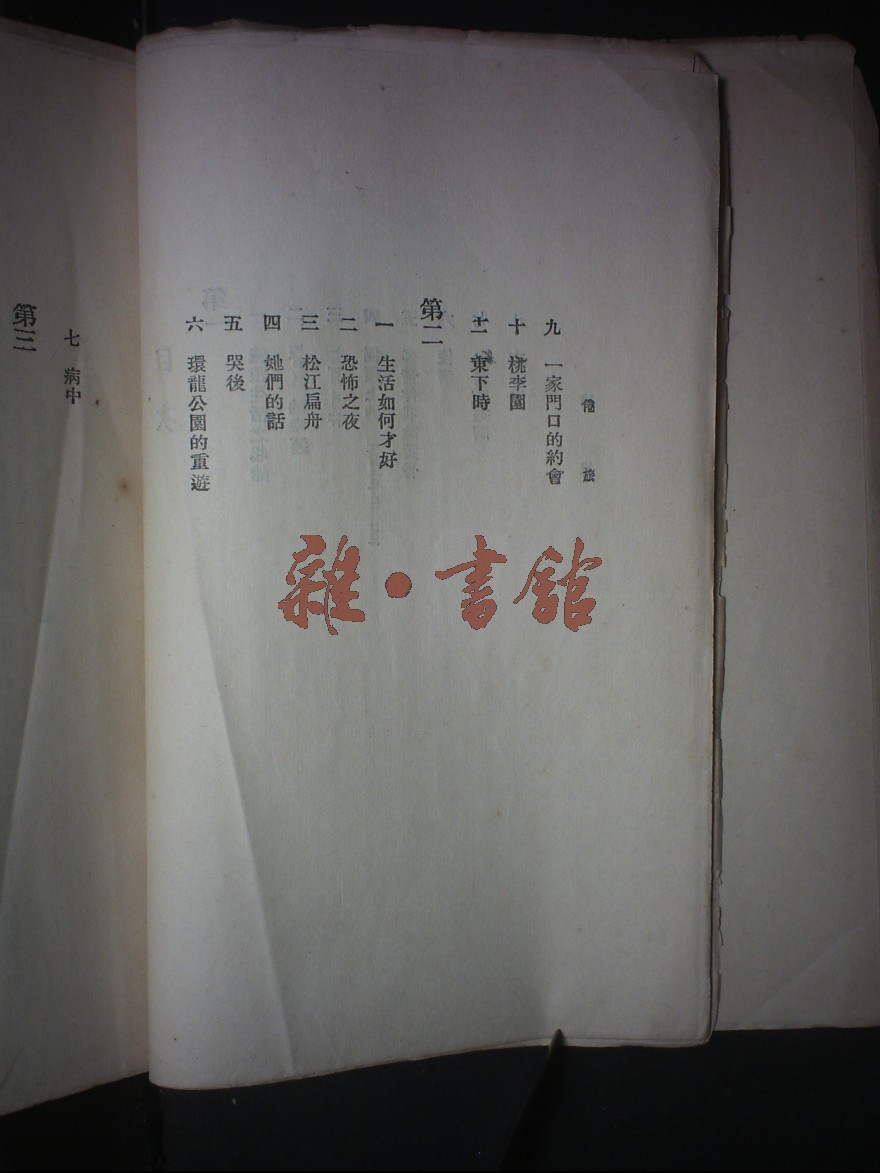 倦旅
九 一家門口的約會
十 桃李園
十一 東下時
第二
一 生活如何才好
二 恐怖之夜
三 松江扁舟
四 她們的話
五 哭後
六 環龍公園的重遊
七 病中
第三
雜·書館